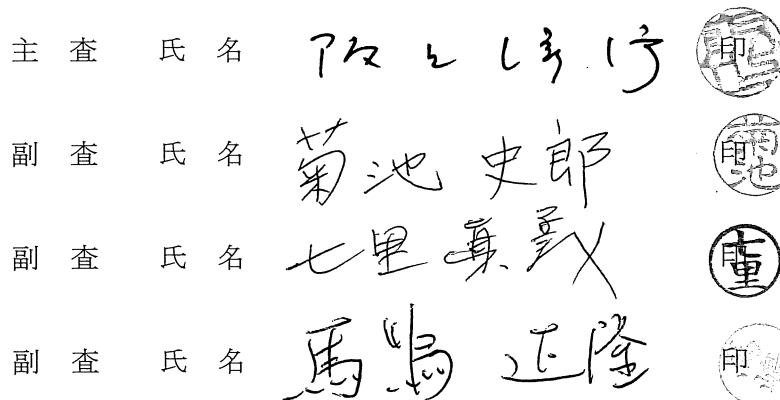 主査 氏名 阪上洋行 印
副査 氏名 菊池 史郎 印
副査 氏名 七里眞義 印
副査 氏名 馬嶋 正隆 印